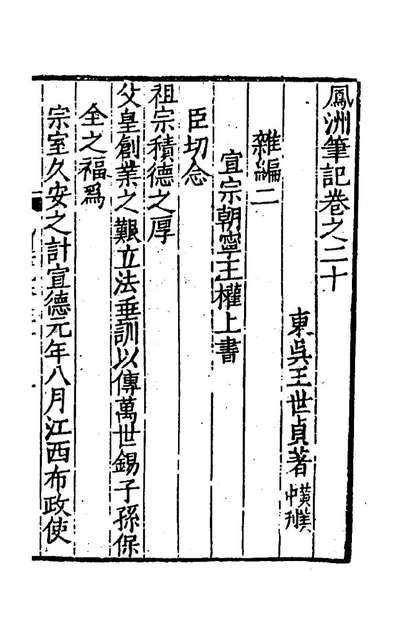 鳳洲筆記卷之二十
東吳王世貞著 黃美中刊
雜編二
宣宗朝寧王權上書
臣切念
祖宗積德之厚
父皇創業之艱立法垂訓以傳萬世錫子孫保
全之福爲
宗室久安之計宣德元年八月江西布政使